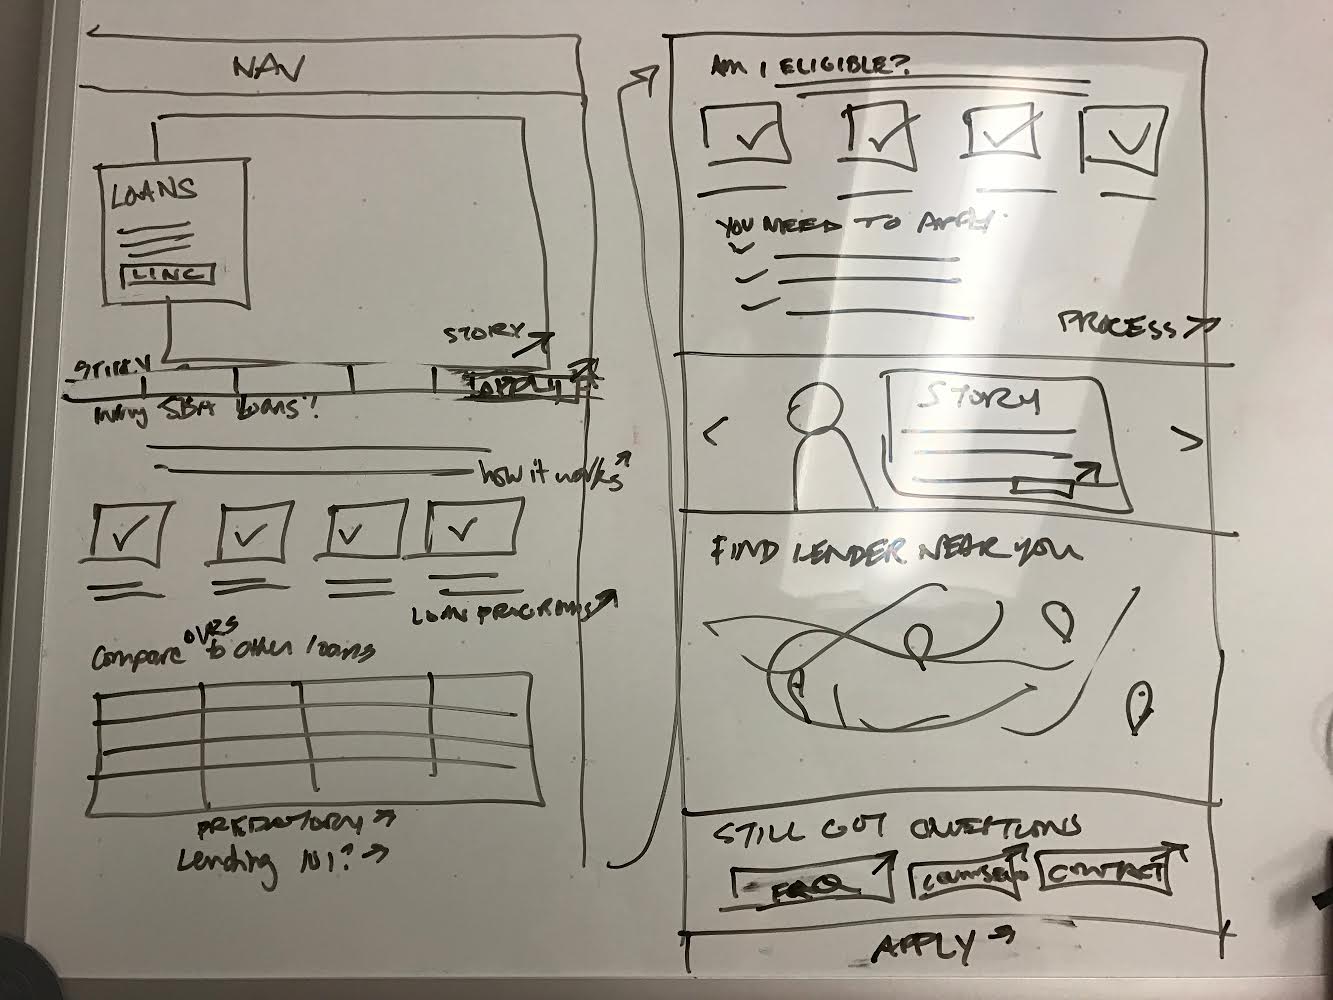 NAV
LOANS
LINC
STORY
STICKY
APPLY
SBA loans?
how it works
LOAN PROGRAMS
Compare OURS to other loans
PREDATORY
Lending 101?
AM I ELIGIBLE?
YOU NEED TO APPLY
PROCESS
< STORY >
FIND LENDER NEAR YOU
STILL GOT QUESTIONS
FAQ
CONTACT
APPLY